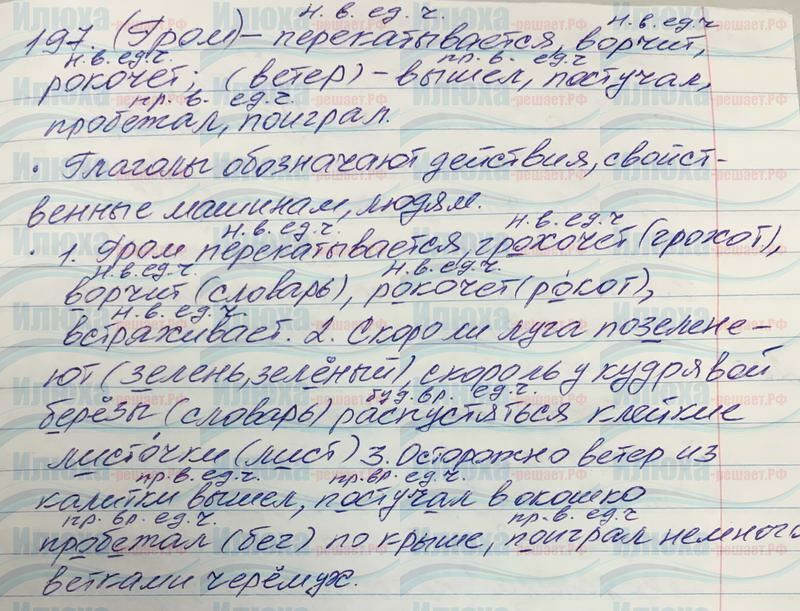 н. в. ед. ч. н.в. ед.ч
197. (Гром) – перекатывается, ворчит,
н.в. ед.ч. пр. в. ед.ч
рокочет; (ветер) – вышел, постучал,
пр. в. ед.ч.
пробежал, поиграл.
· Глаголы обозначают действия, свойст-
венные машинам, людям.
н.в. ед.ч. н.в. ед.ч
· 1. Гром перекатывается, грохочет (грохот),
н.в. ед.ч. н.в. ед.ч.
ворчит (словарь), рокочет (рóкот),
н.в. ед.ч.
встряхивает. 2. Скоро ли луга позелене-
ют (зелень, зелёный), скороль у кудрявой
буд. вр. ед.ч.
берёзы (словарь) распустяться клейкие
листóчки (лист) 3. Осторожно ветер из
пр.в. ед.ч. пр.вр. ед.ч.
калитки вышел, постучал в окошко
пр. вр. ед.ч. пр.в. ед.ч
пробежал (бег) по крыше, поиграл немного
ветками черёмух.
Илюха
-решает.РФ